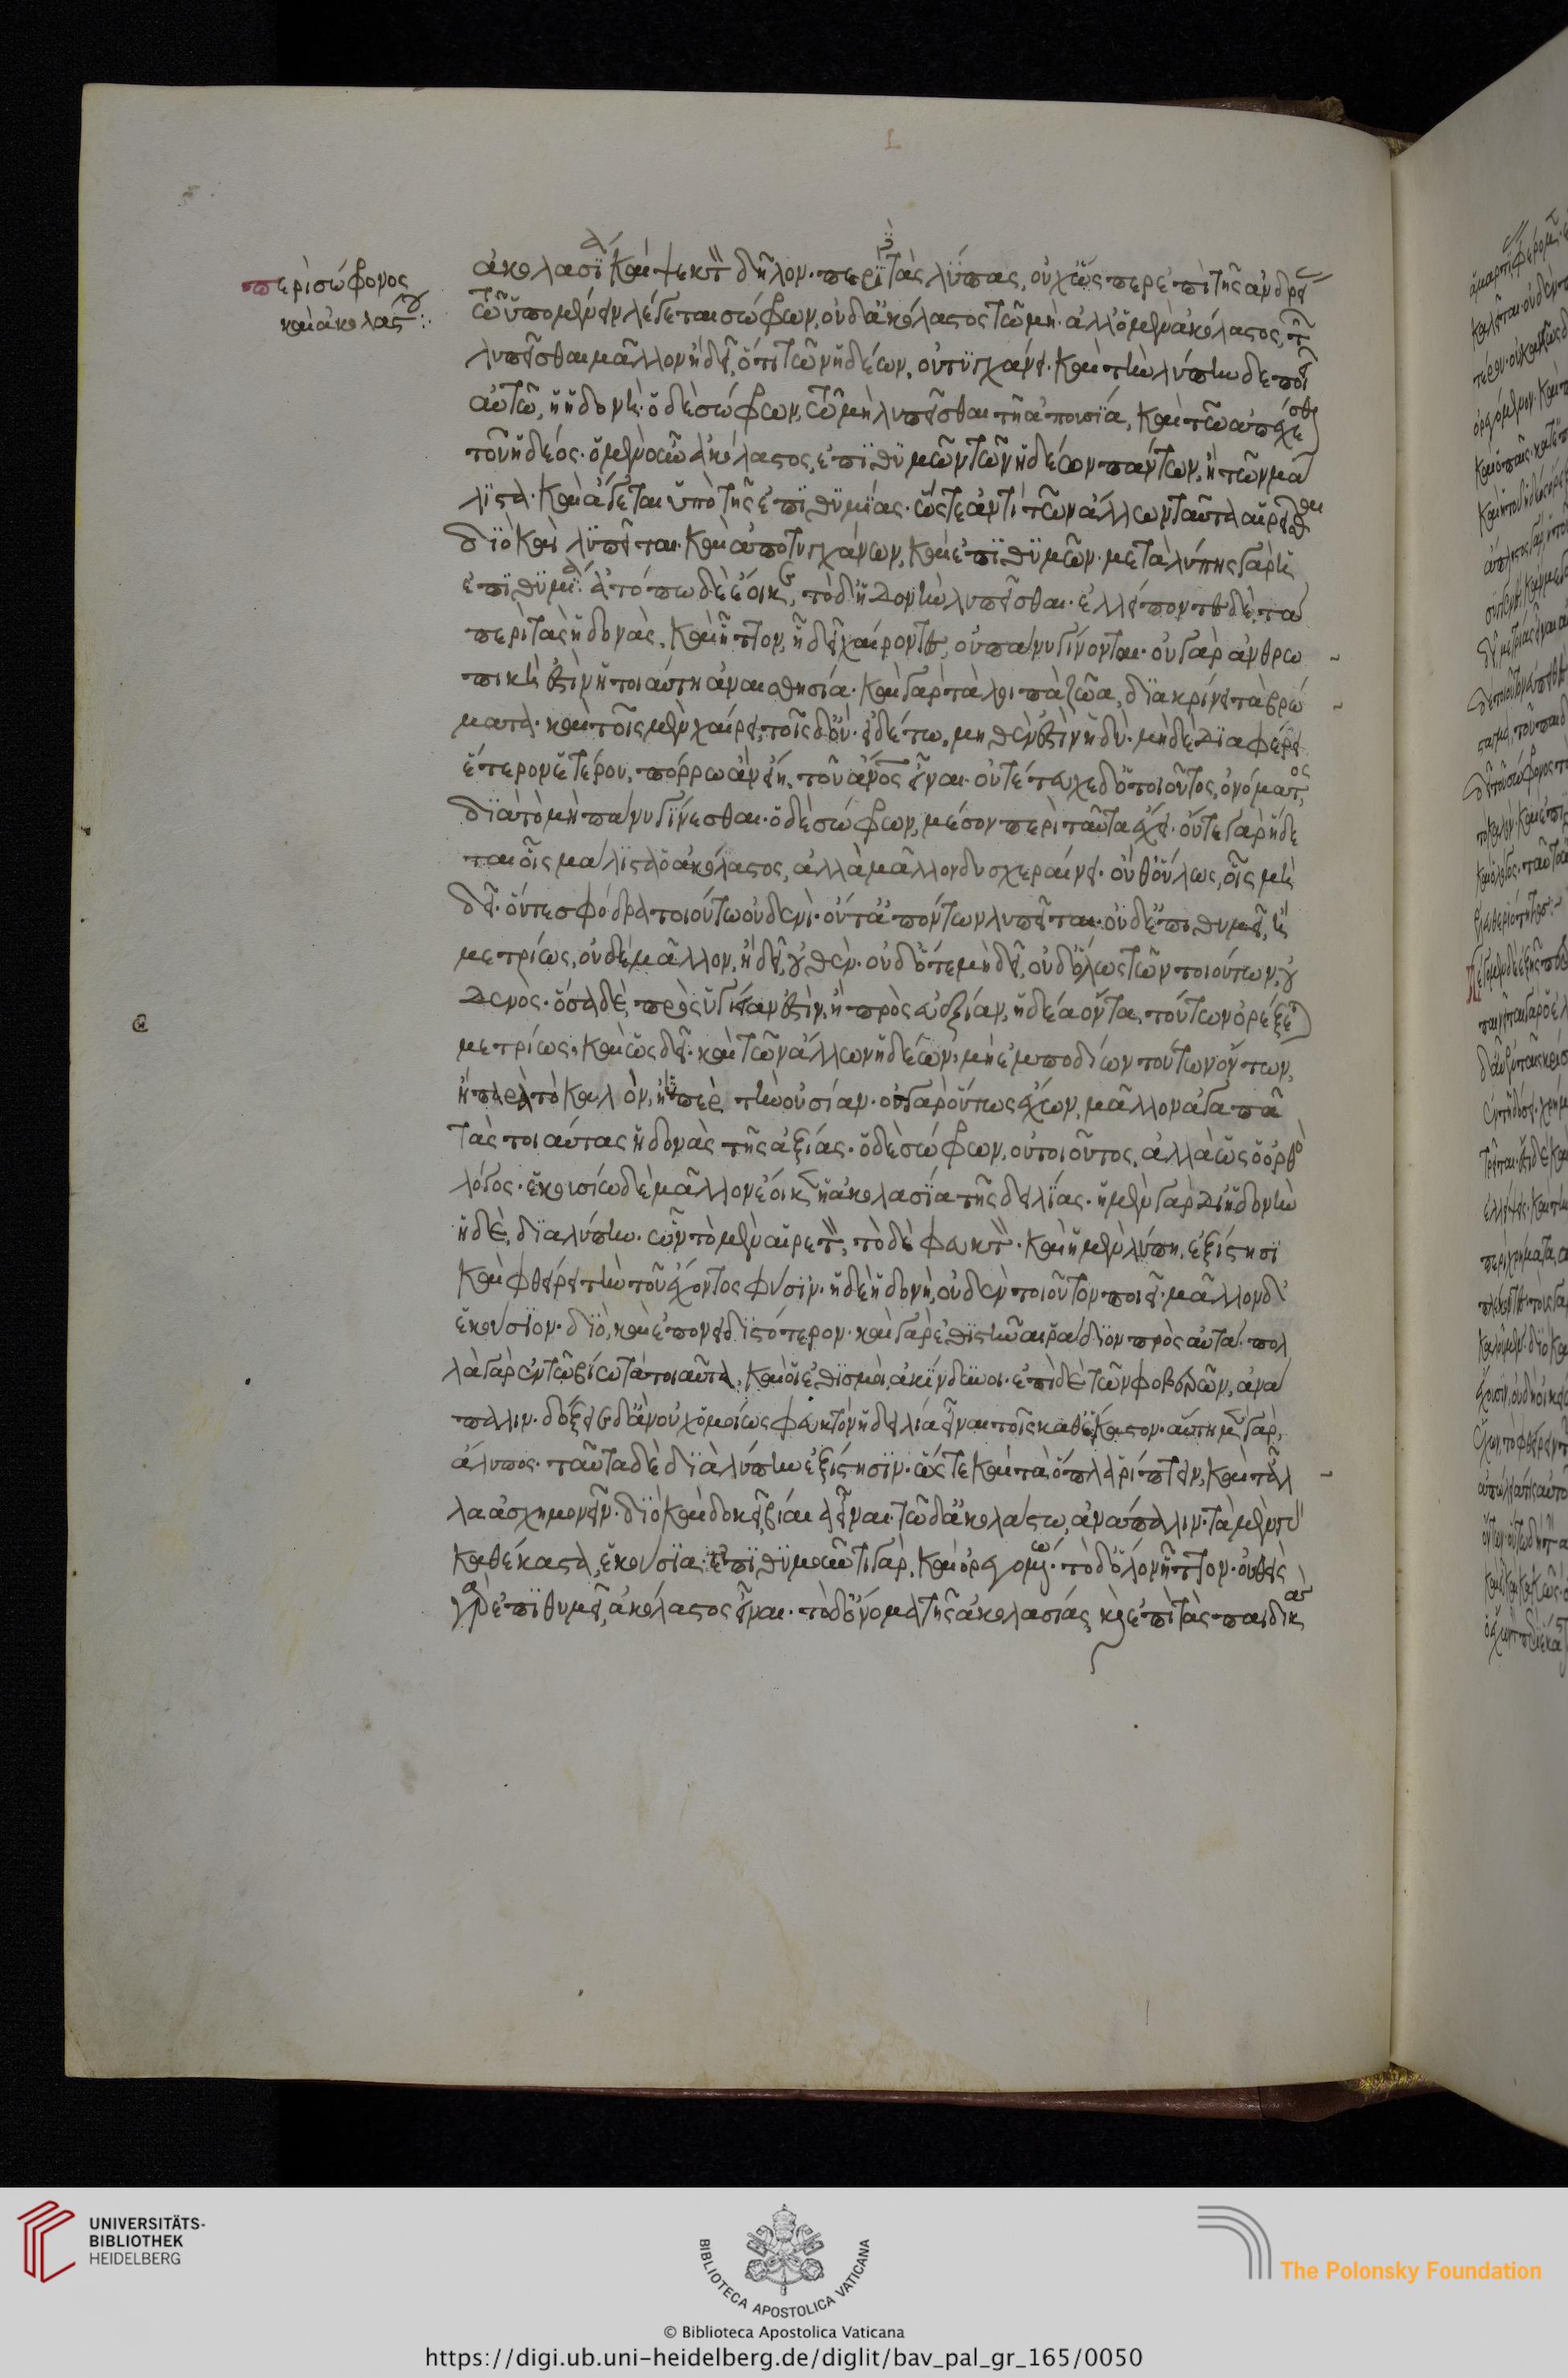 περὶ σώφρονος
καὶ ἀκολάστου:
ἀκολασία καὶ ψεκτὸν δῆλον· περὶ δὲ τὰς λύπας, οὐχ ὥσπερ ἐπὶ τῆς ἀνδρείας
τῷ ὑπομένειν λέγεται σώφρων, οὐδ' ἀκόλαστος τῷ μή· ἀλλ' ὁ μὲν ἀκόλαστος, τῷ
λυπεῖσθαι μᾶλλον ἢ δεῖ, ὅτι τῶν ἡδέων, οὐ τυγχάνει· καὶ τὴν λύπην δὲ ποιεῖ
αὐτῷ, ἡ ἡδονή· ὁ δὲ σώφρων, τῷ μὴ λυπεῖσθαι τῇ ἀπουσίᾳ, καὶ τῷ ἀπέχεσθαι
τοῦ ἡδέος. ὁ μὲν οὖν ἀκόλαστος, ἐπιθυμεῖ τῶν ἡδέων πάντων, ἢ τῶν μά
λιστα· καὶ ἄγεται ὑπὸ τῆς ἐπιθυμίας· ὥστε ἀντὶ τῶν ἄλλων ταῦτα αἱρεῖσθαι
διὸ καὶ λυπεῖται· καὶ ἀποτυγχάνων, καὶ ἐπιθυμῶν· μετὰ λύπης γὰρ ἡ
ἐπιθυμία· ἀτόπῳ δὲ ἔοικε, τὸ δι' ἡδονὴν λυπεῖσθαι· ἐλλείποντες δὲ, τὰ
περὶ τὰς ἡδονὰς, καὶ ἧττον, ἢ δεῖ χαίροντες, οὐ πάνυ γίνονται· οὐ γὰρ ἀνθρω
πικὴ ἐστὶν ἡ τοιαύτη ἀναισθησία· καὶ γὰρ τὰ λοιπὰ ζῶα, διακρίνει τὰ βρώ
ματα· καὶ τοῖς μὲν χαίρει, τοῖς δ' οὔ· εἰ δέ τῳ, μηθέν ἐστιν ἡδύ· μηδὲ διαφέρει
ἕτερον ἑτέρου, πόρρω ἂν εἴη, τοῦ ἄνος εἶναι· οὐ τέτευχε δ' ὁ τοιοῦτος, ὀνόματος,
διὰ τὸ μὴ πάνυ γίνεσθαι· ὁ δὲ σώφρων, μέσον περὶ ταῦτα ἔχει· οὔτε γὰρ ἥδε
ται οἷς μάλιστα ὁ ἀκόλαστος, ἀλλὰ μᾶλλον δυσχεραίνει· οὐθ' ὅλως, οἷς μὴ
δεῖ· οὔτε σφόδρα τοιούτῳ οὐδενί· οὔτ' ἀπόντων λυπεῖται· οὐδ' ἐπιθυμεῖ, ἢ
μετρίως, οὐδὲ μᾶλλον, ἢ δεῖ, οὐθέν· οὐδ' ὅτε μὴ δεῖ, οὐδ' ὅλως τῶν τοιούτων, οὐ
δενός· ὅσα δὲ, πρὸς ὑγίειαν ἐστὶν, ἢ πρὸς εὐεξίαν, ἡδέα ὄντα, τούτων ὀρέξεται
μετρίως, καὶ ὡς δεῖ· καὶ τῶν ἄλλων ἡδέων, μὴ ἐμποδίων τούτων ὄντων,
ἢ παρὰ τὸ καλὸν, ἢ ὑπὲρ τὴν οὐσίαν· ὁ γὰρ οὕτως ἔχων, μᾶλλον ἀγαπᾶ
τὰς τοιαύτας ἡδονὰς τῆς ἀξίας· ὁ δὲ σώφρων, οὐ τοιοῦτος, ἀλλὰ ὡς ὁ ὀρθὸς
λόγος· ἑκουσίῳ δὲ μᾶλλον ἔοικεν ἡ ἀκολασία τῆς δειλίας· ἡ μὲν γὰρ δι' ἡδονὴν
ἡ δὲ, διὰ λύπην· ὧν τὸ μὲν αἱρετὸν, τὸ δὲ φευκτόν· καὶ ἡ μὲν λύπη, ἐξίστησι
καὶ φθείρει τὴν τοῦ ἔχοντος φύσιν· ἡ δὲ ἡδονὴ, οὐδὲν τοιοῦτον ποιεῖ· μᾶλλον δὲ
ἑκούσιον· διὸ, καὶ ἐπονειδιστότερον· καὶ γὰρ ἐθισθῆναι ῥάδιον πρὸς αὐτά· πολ
λὰ γὰρ ἐν τῷ βίῳ τὰ τοιαῦτα, καὶ οἱ ἐθισμοὶ, ἀκίνδυνοι· ἐπὶ δὲ τῶν φοβερῶν, ἀνά
παλιν· δόξειε δ' ἂν οὐχ ὁμοίως φευκτὸν ἡ δειλία εἶναι τοῖς καθ' ἕκαστον· αὕτη μὲν γὰρ,
ἄλυπος· ταῦτα δὲ διὰ λύπην ἐξίστησιν· ὥστε καὶ τὰ ὅπλα ῥίπτειν, καὶ τἆλ
λα ἀσχημονεῖν· διὸ καὶ δοκεῖ, βίαια εἶναι· τῷ δ' ἀκολάστῳ, ἀνάπαλιν· τὰ μὲν
καθέκαστα, ἑκούσια· ἐπιθυμοῦντι γὰρ, καὶ ὀρεγομένῳ· τὸ δ' ὅλον ἧττον· οὐθεὶς
γὰρ ἐπιθυμεῖ, ἀκόλαστος εἶναι· τὸ δ' ὄνομα τῆς ἀκολασίας, καὶ ἐπὶ τὰς παιδικὰς
UNIVERSITÄTS-
BIBLIOTHEK
HEIDELBERG
BIBLIOTECA APOSTOLICA VATICANA
The Polonsky Foundation
© Biblioteca Apostolica Vaticana
https://digi.ub.uni-heidelberg.de/diglit/bav_pal_gr_165/0050